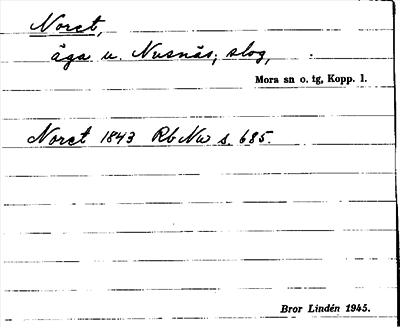 Noret,
äga u. Nusnäs; slog,
Mora sn o. tg, Kopp. l.
Noret 1843 Rb Nw s. 685.
Bror Lindén 1945.